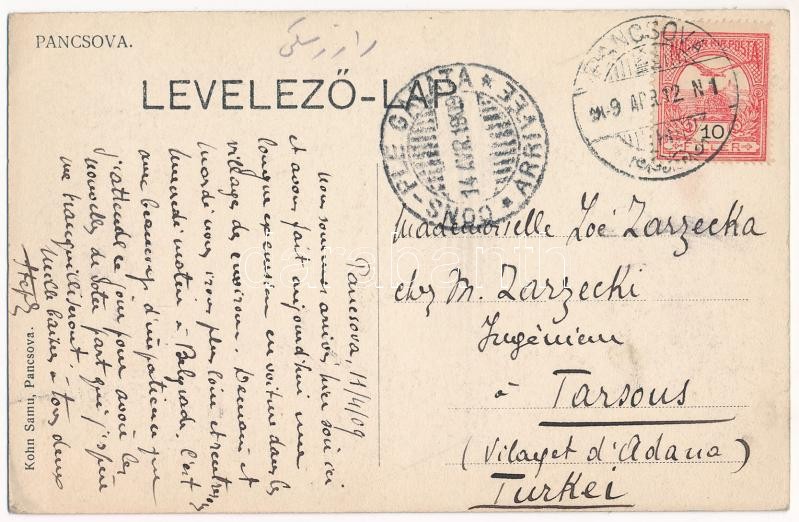 PANCSOVA.
LEVELEZŐ-LAP
CONS-PLE GALATA
14 AVR 1909
ARRIVEE
PANCSOVA
9 APR 12 N 1
MAGYAR KIR. POSTA
10
FILLER
Mademoiselle Zoé Zarzecka
chez M. Zarzecki
Ingénieur
à Tarsous
(Vilayet d'Adana)
Turkei
Pancsova, 11/4/09
Nous sommes arrivés hier soir ici
et avons fait aujourd'hui une
longue excursion en voiture dans les
villages des environs. Demain et
mardi nous irons plus loin et rentrerons
mercredi matin à Belgrade. C'est
avec beaucoup d'impatience que
j'attends ce jour pour avoir les
nouvelles de votre part qui j'espère
me tranquilliseront. -
Mille baisers à tous deux
Kohn Samu, Pancsova.
darabanth